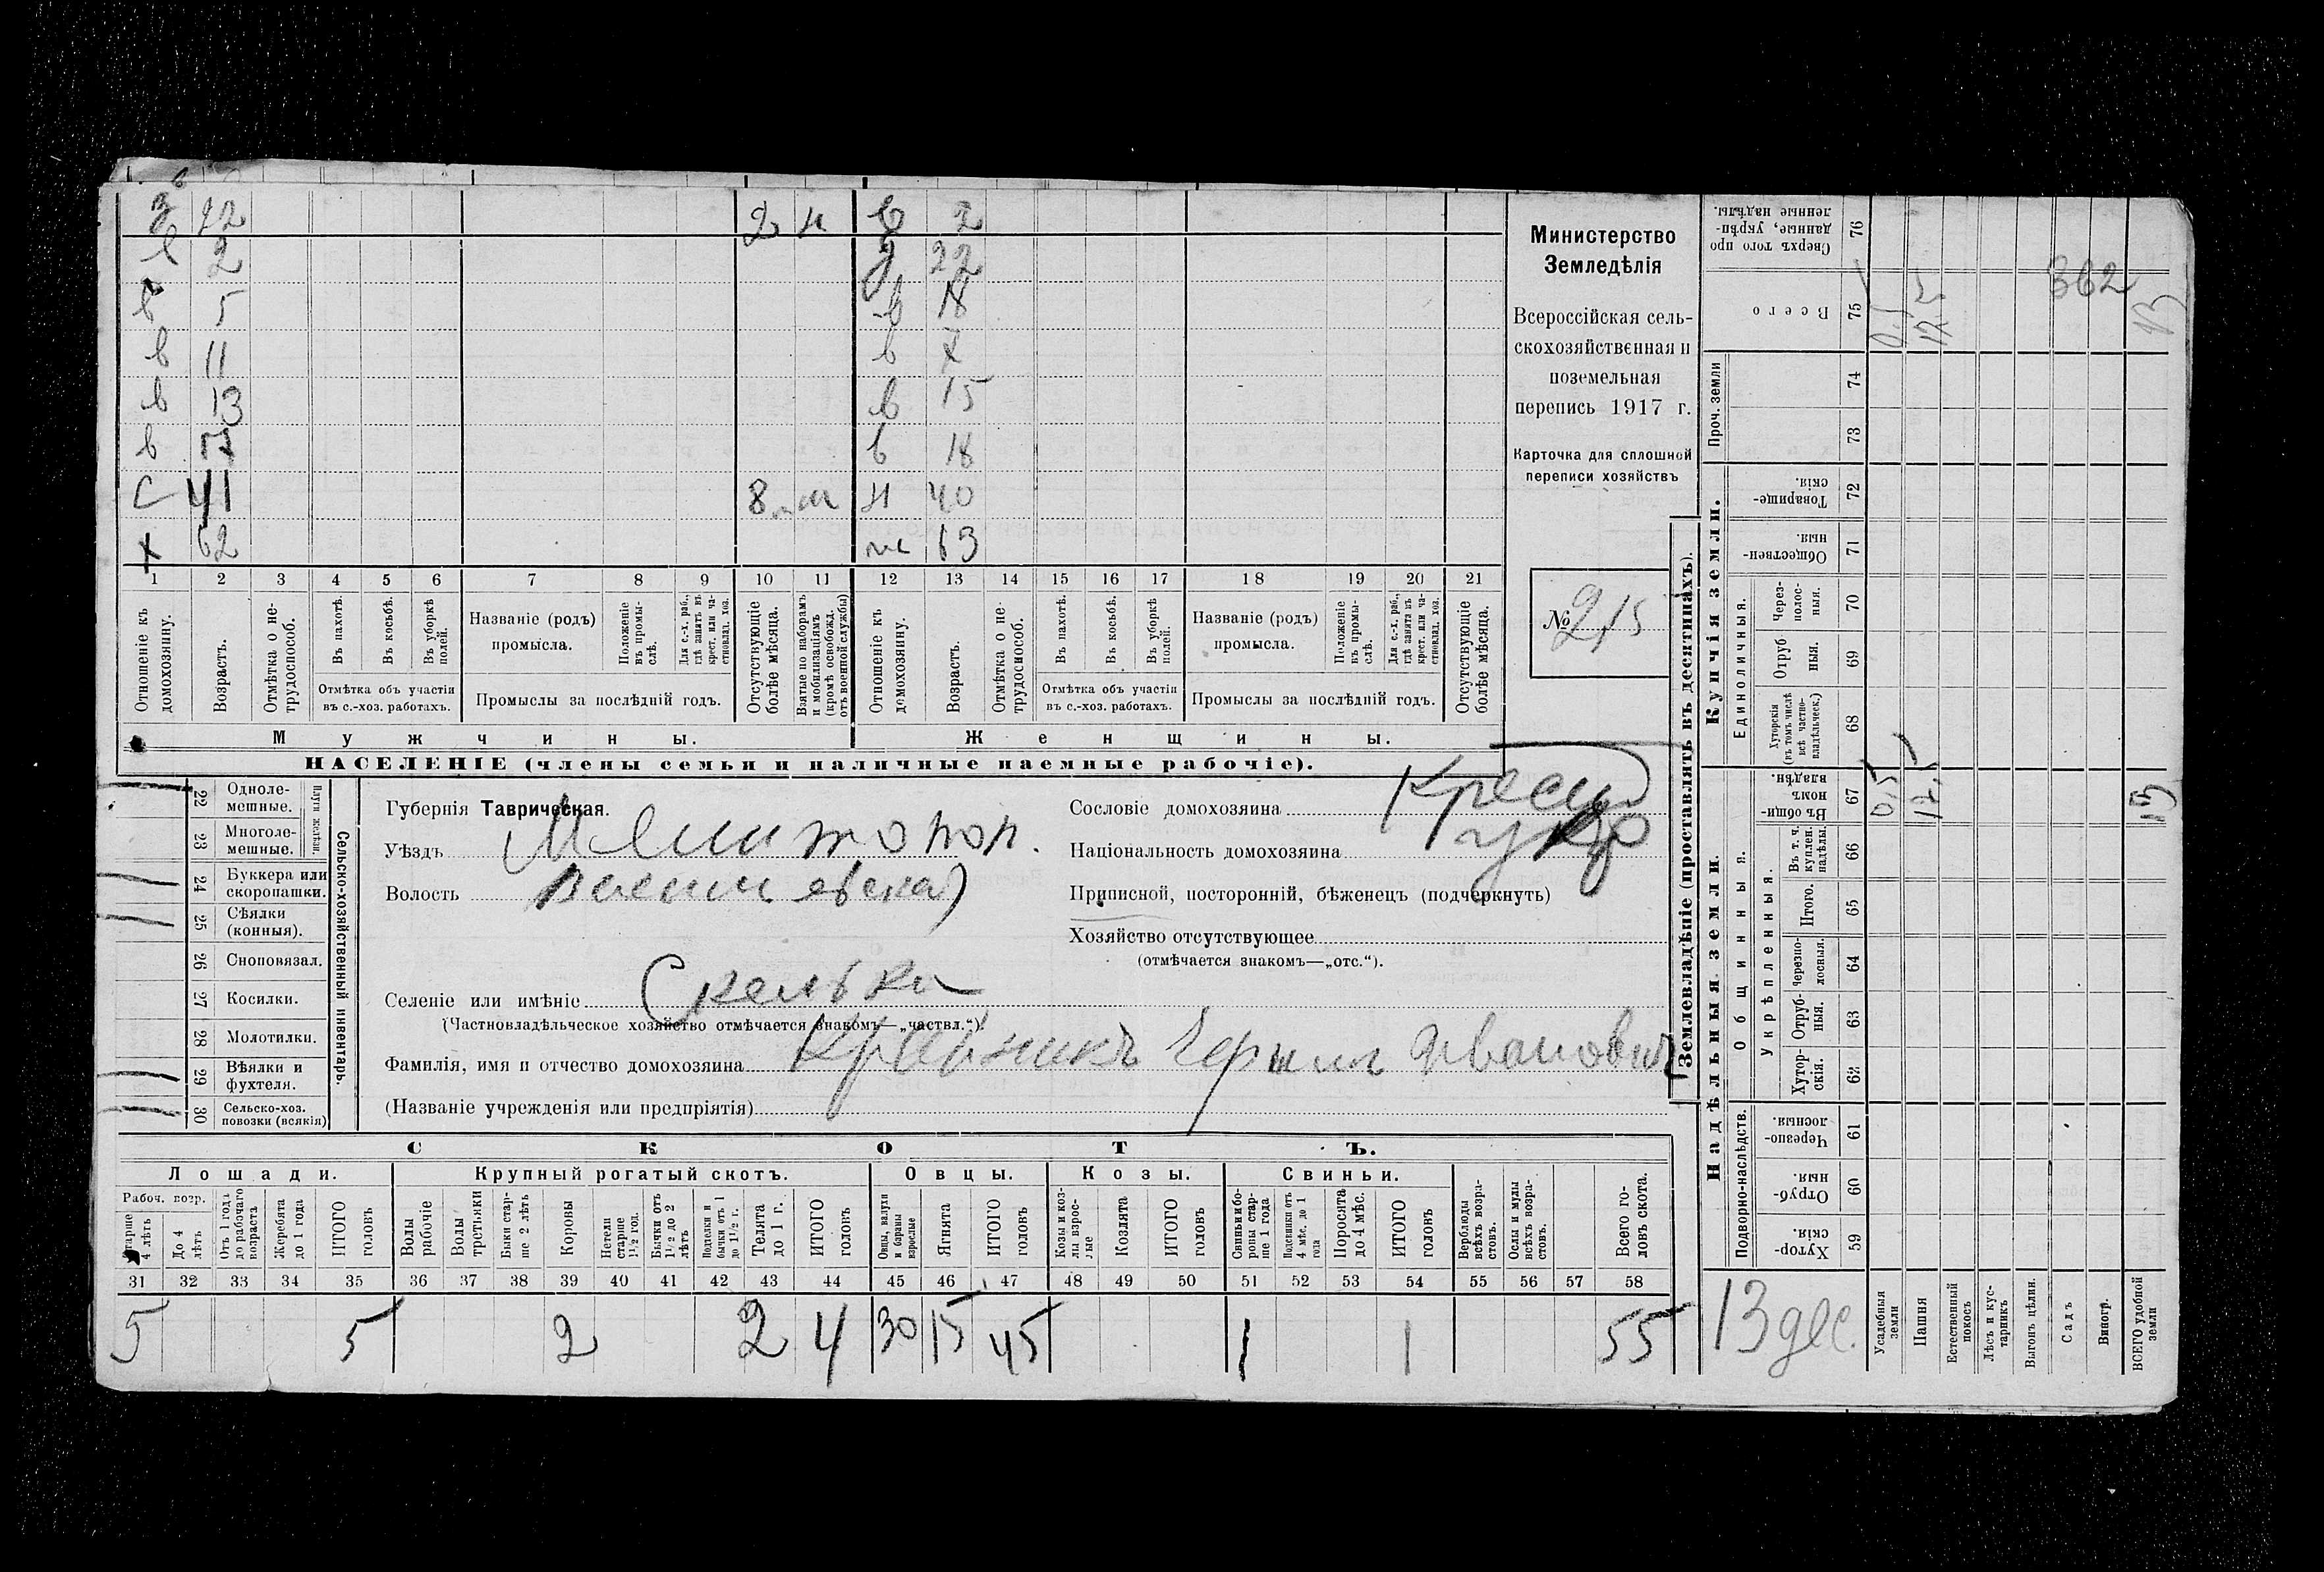 з 22 2 м в 2
в 2 з 22
в 5 в 18
в 11 в
в 13 в 15
в 17 в 18
с 41 8 м м 40
х 62 м 63
1 2 3 4 5 6 7 8 9 10 11 12 13 14 15 16 17 18 19 20 21
Отношеніе къ домохозяину.
Возрастъ.
Отмѣтка о нетрудоспособ.
Въ пахотѣ.
Въ косьбѣ.
Въ уборкѣ полей.
Отмѣтка объ участіи въ с.-хоз. работахъ.
Названіе (родъ) промысла.
Положеніе въ промыслѣ.
Для с.-х. раб., гдѣ занятъ въ крест. или частновлад. хоз.
Промыслы за послѣдній годъ.
Отсутствующіе болѣе мѣсяца.
Взятые по наборамъ и мобилизаціямъ (кромѣ освобожд. отъ военной службы)
Отношеніе къ домохозяину.
Возрастъ.
Отмѣтка о нетрудоспособ.
Въ пахотѣ.
Въ косьбѣ.
Въ уборкѣ полей.
Отмѣтка объ участіи въ с.-хоз. работахъ.
Названіе (родъ) промысла.
Положеніе въ промыслѣ.
Для с.-х. раб., гдѣ занята въ крест. или частновлад. хоз.
Промыслы за послѣдній годъ.
Отсутствующіе болѣе мѣсяца.
Мужчины.
Женщины.
НАСЕЛЕНІЕ (члены семьи и наличные наемные рабочіе).
Министерство
Земледѣлія
Всероссійская сель-
скохозяйственная и
поземельная
перепись 1917 г.
Карточка для сплошной
переписи хозяйствъ
№ 215
Сельско-хозяйственный инвентарь.
Плуги желѣзн.
22 Однолемешные.
23 Многолемешные.
24 Буккера или скоропашки.
25 Сѣялки (конныя).
26 Сноповязал.
27 Косилки.
28 Молотилки.
29 Вѣялки и фухтеля.
30 Сельско-хоз. повозки (всякія)
Губернія Таврическая.
Уѣздъ Мелитопол.
Волость Васильевская
Селеніе или имѣніе Скельки
(Частновладѣльческое хозяйство отмѣчается знакомъ—„частвл.“).
Фамилія, имя и отчество домохозяина Иванович
(Названіе учрежденія или предпріятія)
Сословіе домохозяина Крест
Національность домохозяина укр
Приписной, посторонній, бѣженецъ (подчеркнуть)
Хозяйство отсутствующее
(отмѣчается знакомъ—„отс.“).
СКОТЪ.
Лошади. Крупный рогатый скотъ. Овцы. Козы. Свиньи.
Рабоч. возр.
Старше 4 лѣтъ
До 4 лѣтъ
Отъ 1 года до рабочаго возраста
Жеребята до 1 года
ИТОГО головъ
Волы рабочіе
Волы третьяки
Быки старше 2 лѣтъ
Коровы
Нетели старше 1½ год.
Бычки отъ 1½ до 2 лѣтъ
Подтелки и бычки отъ 1 до 1½ г.
Телята до 1 г.
ИТОГО головъ
Овцы, валухи и бараны взрослые
Ягнята
ИТОГО головъ
Козы и козлы взрослые
Козлята
ИТОГО головъ
Свиньи и боровы старше 1 года
Подсвинки отъ 4 мѣс. до 1 года
Поросята до 4 мѣс.
ИТОГО головъ
Верблюды всѣхъ возрастовъ.
Ослы и мулы всѣхъ возрастовъ.
Всего головъ скота.
31 32 33 34 35 36 37 38 39 40 41 42 43 44 45 46 47 48 49 50 51 52 53 54 55 56 57 58
5 5 2 2 4 30 15 45 1 1 55
Землевладѣніе (проставлять въ десятинахъ).
Надѣльныя земли.
Купчія земли.
Проч. земли
Подворно-наслѣдств.
Общинныя.
Укрѣпленныя.
Единоличныя.
Сверхъ того проданные, укрѣпленные надѣлы. 76
Всего 75 0.5 12.5 13
362
74
73
Товарищескія. 72
Общественныя. 71
Черезполосныя. 70
Отрубныя. 69
Хуторскія (въ томъ числѣ всѣ частновладѣльческ.) 68
Въ общинномъ владѣн. 67 0.5 12.5 13
Въ т. ч. куплен. надѣлы. 66
Итого. 65
Черезполосныя. 64
Отрубныя. 63
Хуторскія. 62
Черезполосныя. 61
Отрубныя. 60
Хуторскія. 59
13 дес.
Усадебныя земли
Пашня
Естественный покосъ
Лѣсъ и кустарникъ
Выгонъ цѣлин.
Садъ
Виногр.
ВСЕГО удобной земли